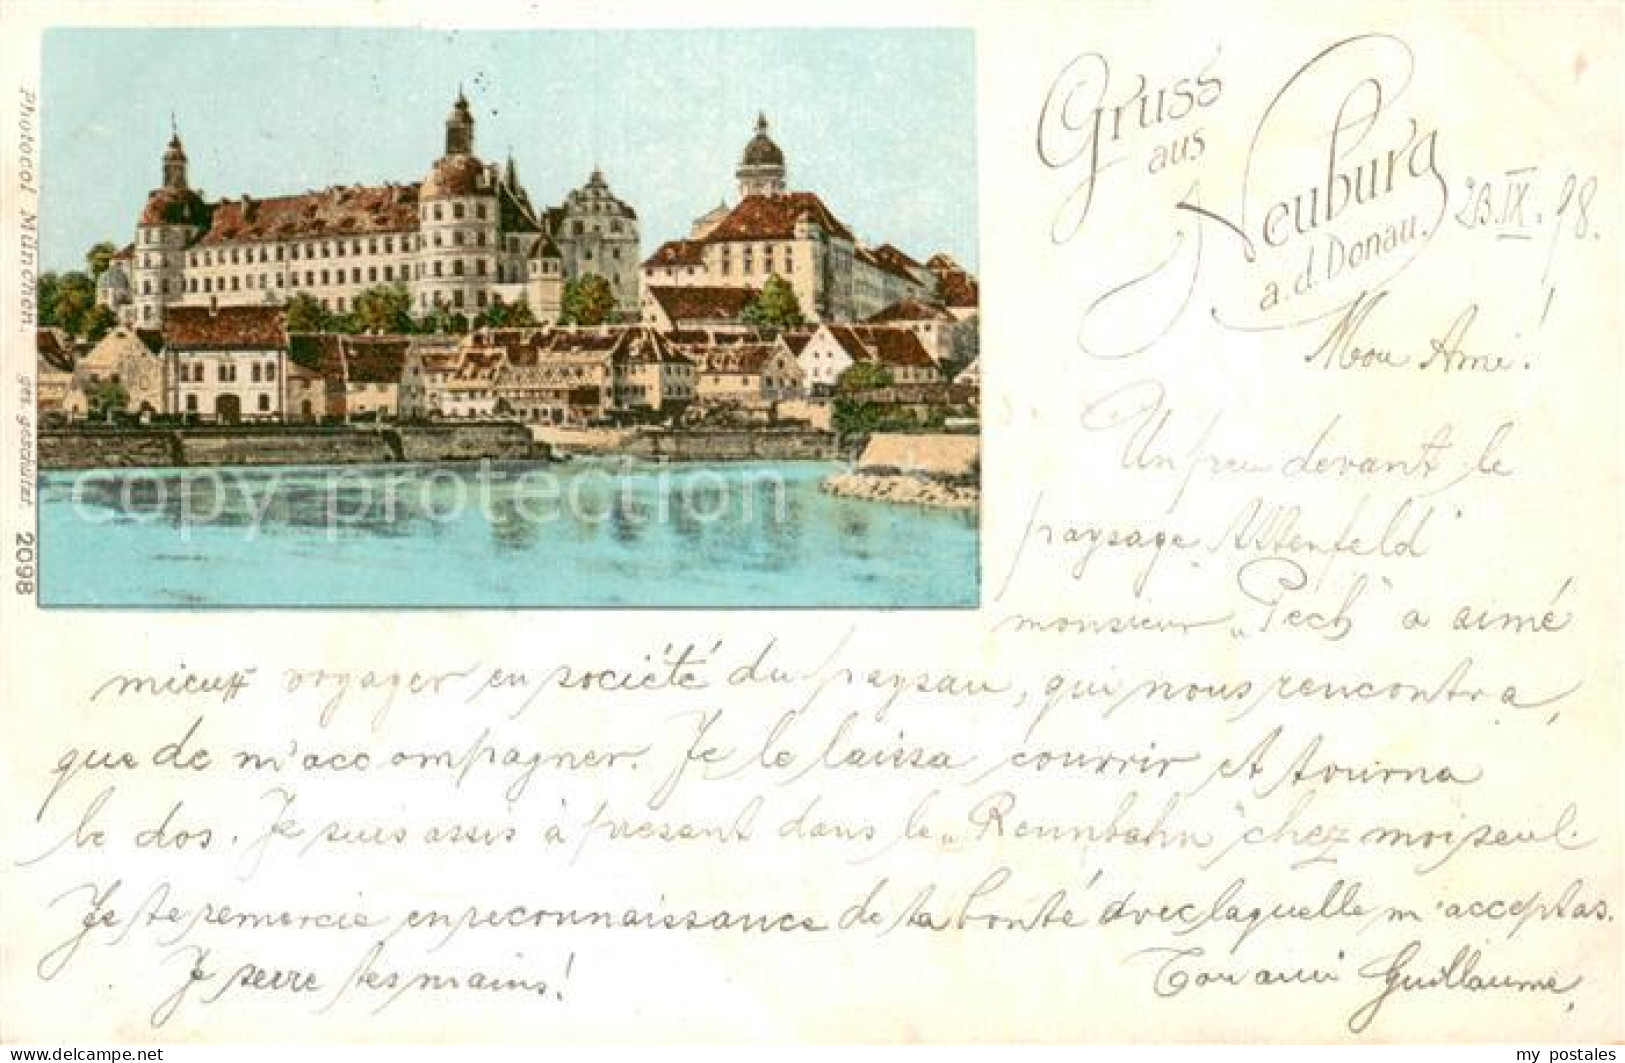 Photocol München. ges. geschützt. 2098
Gruss
aus
Neuburg
a.d. Donau.
23.IX.98.
Mon Ami!
Un peu devant le
paysage "Attenfeld"
monsieur "Pech" a aimé
mieux voyager en société du paysan, qui nous rencontra,
que de m'accompagner. Je le laissa courrir et tourna
le dos. Je suis assis à present dans le "Rennbahn" chez moi seul.
Je te remercie en reconnaissance de ta bonté avec laquelle m'acceptas.
Je serre tes mains!
Ton ami Guillaume,
copy protection
www.my-postales.com
my postales